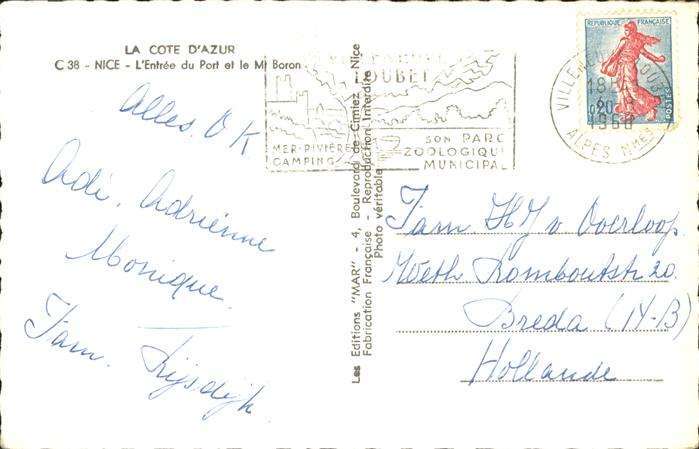 LA COTE D'AZUR
C 38 - NICE - L'Entrée du Port et le Mt Boron
Alles. OK
Adi. Adriënne
Monique.
Fam. Rijsdijk
Les Editions "MAR" - 4, Boulevard de Cimiez - Nice
Fabrication Française - Reproduction Interdite
Photo véritable
LOUBET
MER-RIVIÈRE
CAMPING
SON PARC
ZOOLOGIQUE
MUNICIPAL
REPUBLIQUE FRANÇAISE
0,20
POSTES
VILLENEUVE LOUBET
ALPES MMES
Fam HJ v Overloop.
Weth Romboutstr 20
Breda (N-B)
Hollande